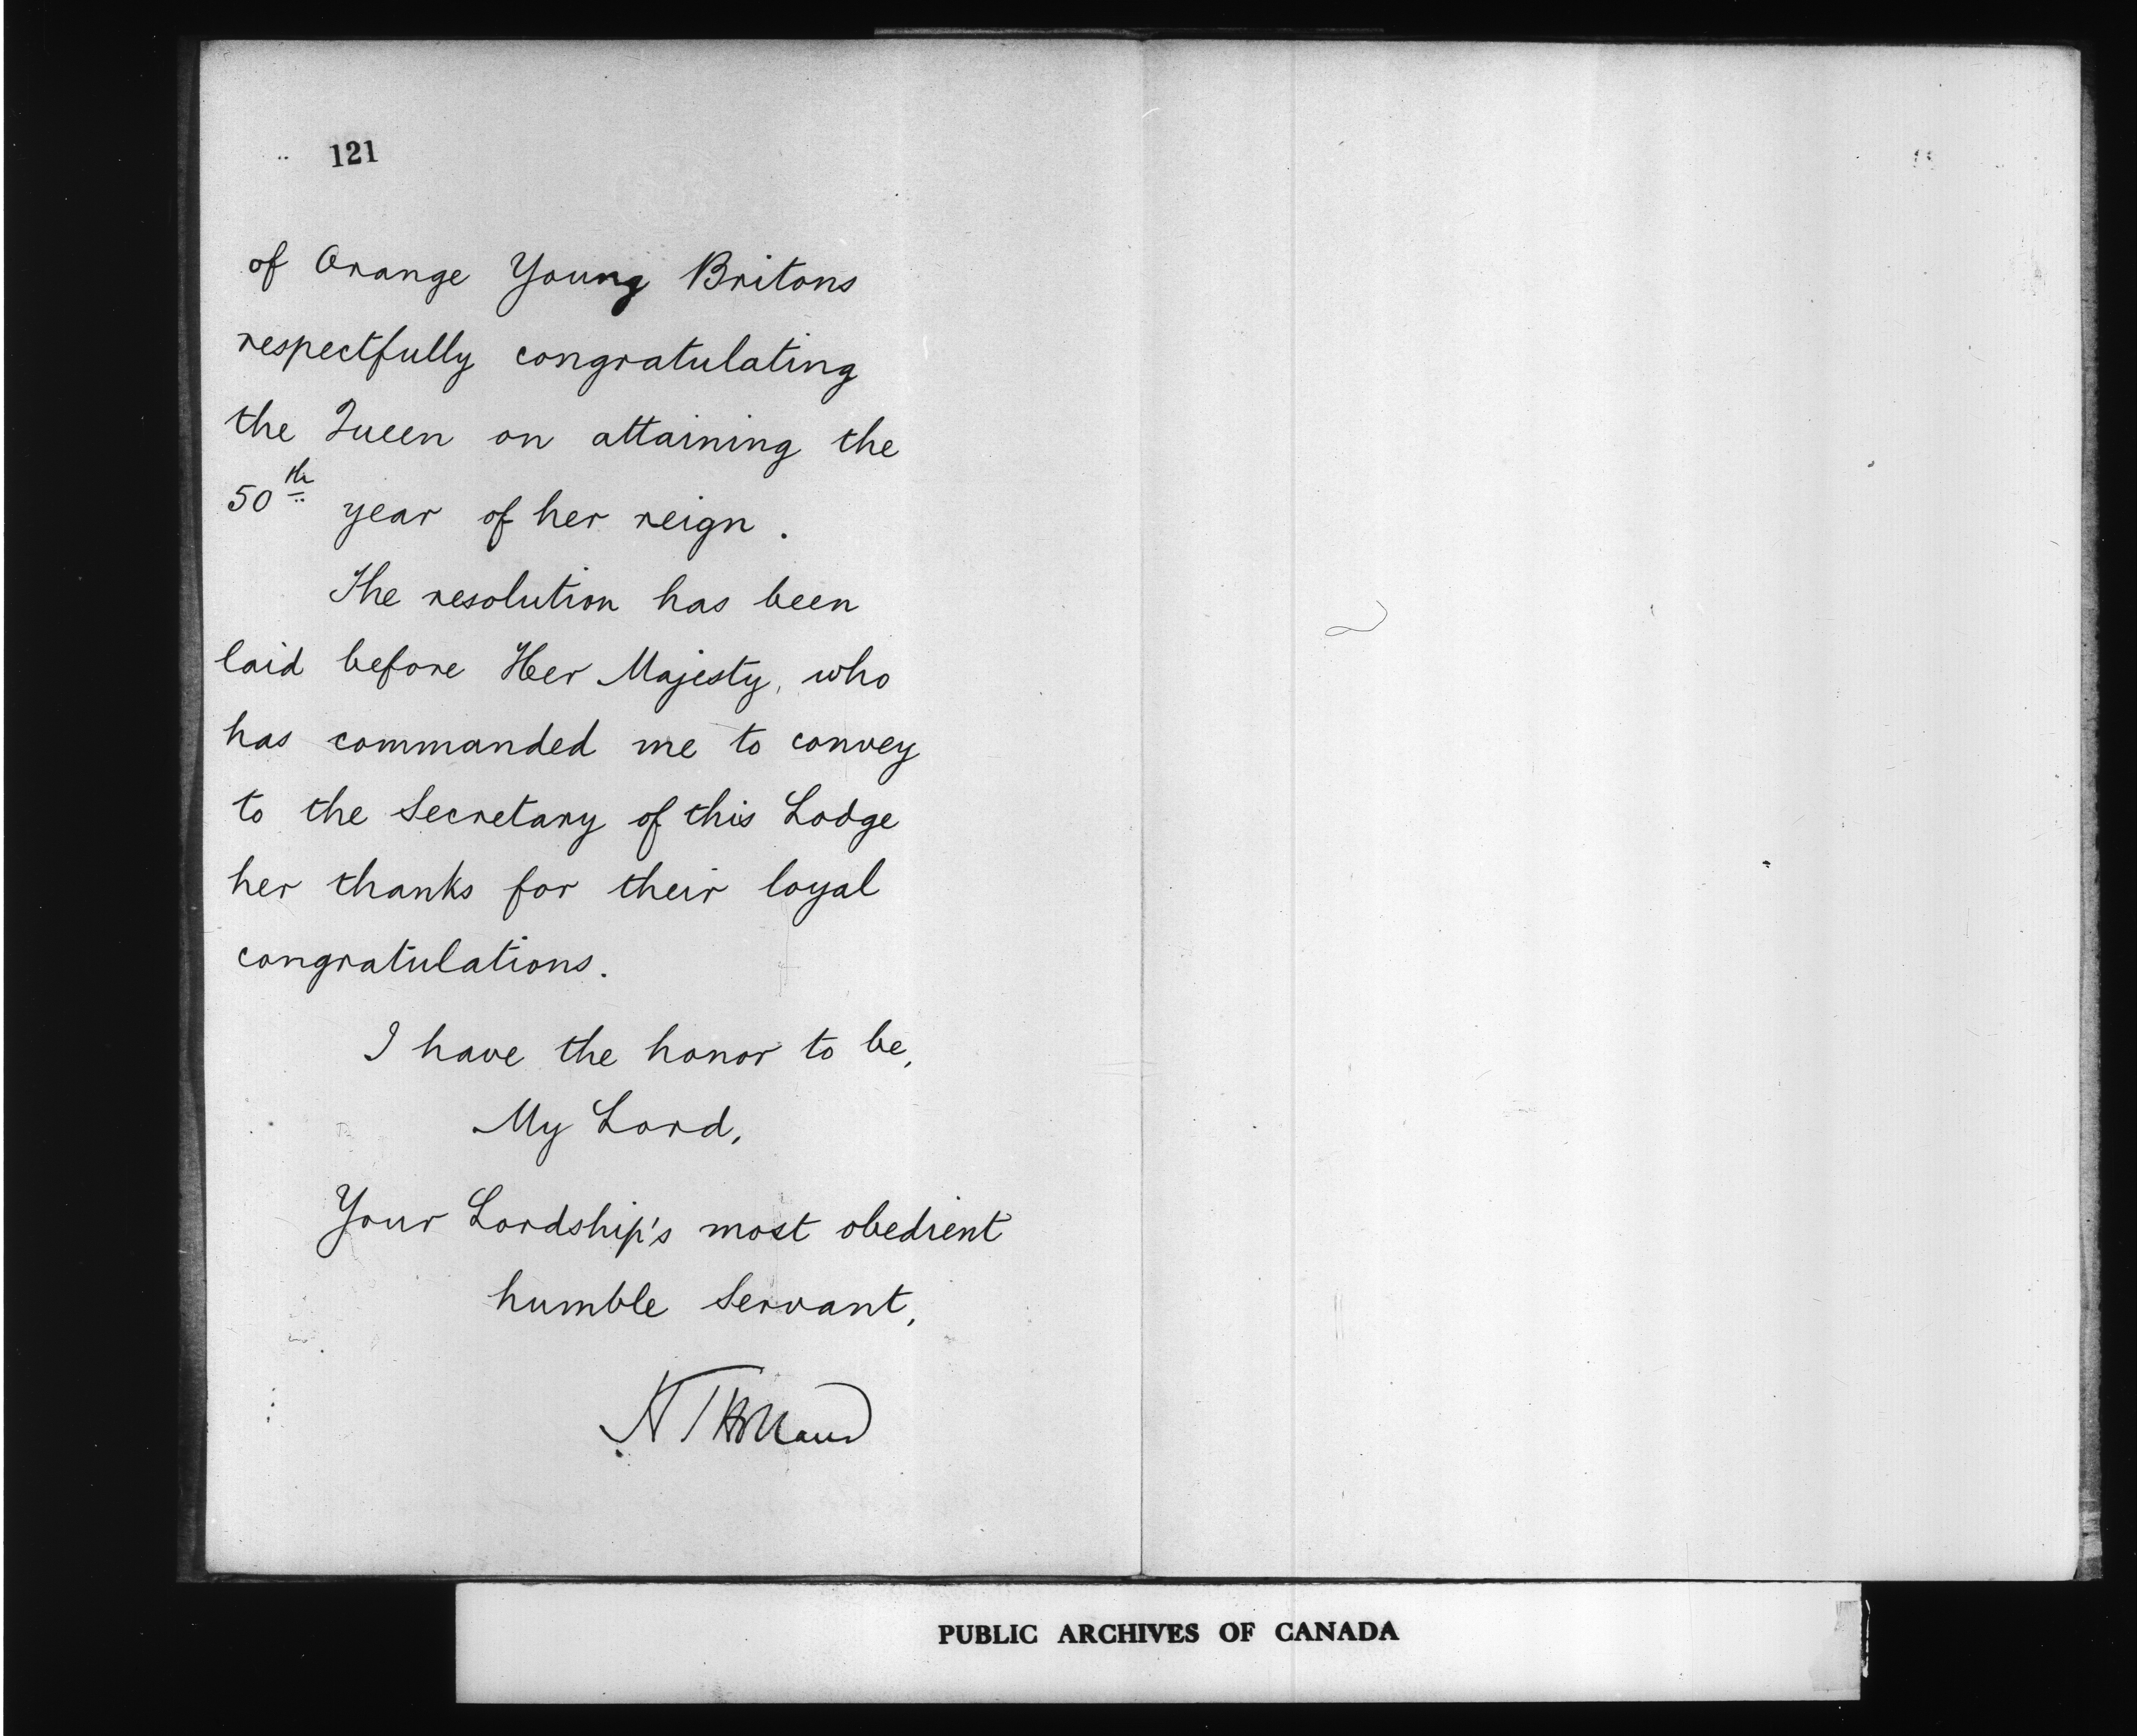 121
of Orange Young Britons
respectfully congratulating
the Queen on attaining the
50th year of her reign.
The resolution has been
laid before Her Majesty, who
has commanded me to convey
to the Secretary of this Lodge
her thanks for their loyal
congratulations.
I have the honor to be,
My Lord,
Your Lordship's most obedient
humble Servant,
H T Holland
PUBLIC ARCHIVES OF CANADA